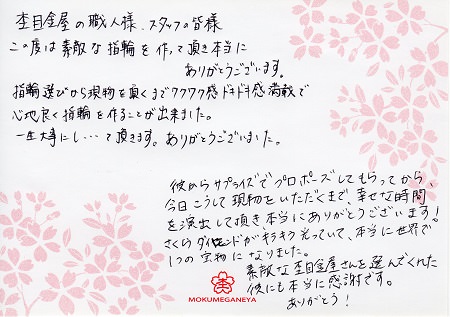 杢目金屋の職人様、スタッフの皆様
この度は素敵な指輪を作って頂き本当に
ありがとうございます。
指輪選びから現物を頂くまでワクワク感ドキドキ感満載で
心地良く指輪を作ることが出来ました。
一生大事にし…て頂きます。ありがとうございました。
彼からサプライズでプロポーズしてもらってから、
今日こうして現物をいただくまで、幸せな時間
を演出して頂き、本当にありがとうございます!
さくらダイヤモンドがキラキラ光っていて、本当に世界で
1つの宝物になりました。
素敵な杢目金屋さんを選んでくれた
彼にも本当に感謝です。
ありがとう!
MOKUMEGANEYA